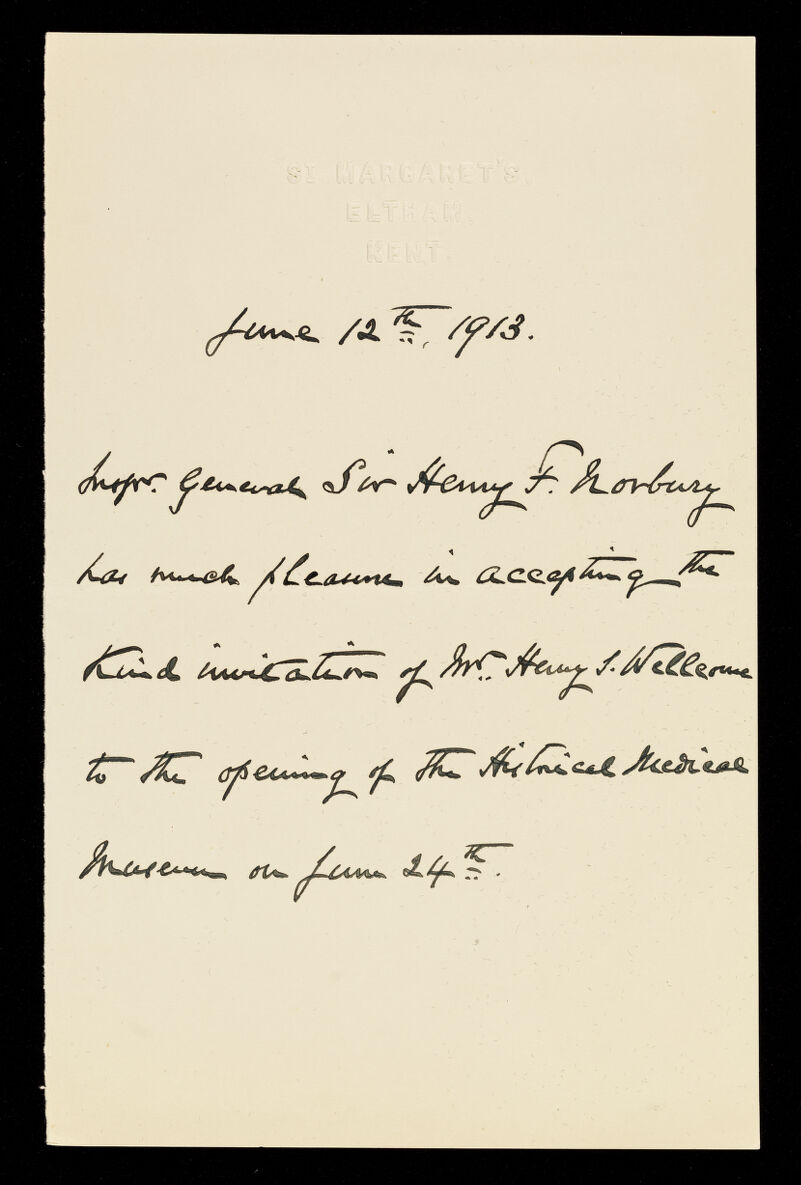 ST. MARGARET'S,
ELTHAM,
KENT.
June 12th, 1913.
Inspr. General Sir Henry F. Norbury
has much pleasure in accepting the
kind invitation of Mr. Henry S. Wellcome
to the opening of the Historical Medical
Museum on June 24th.